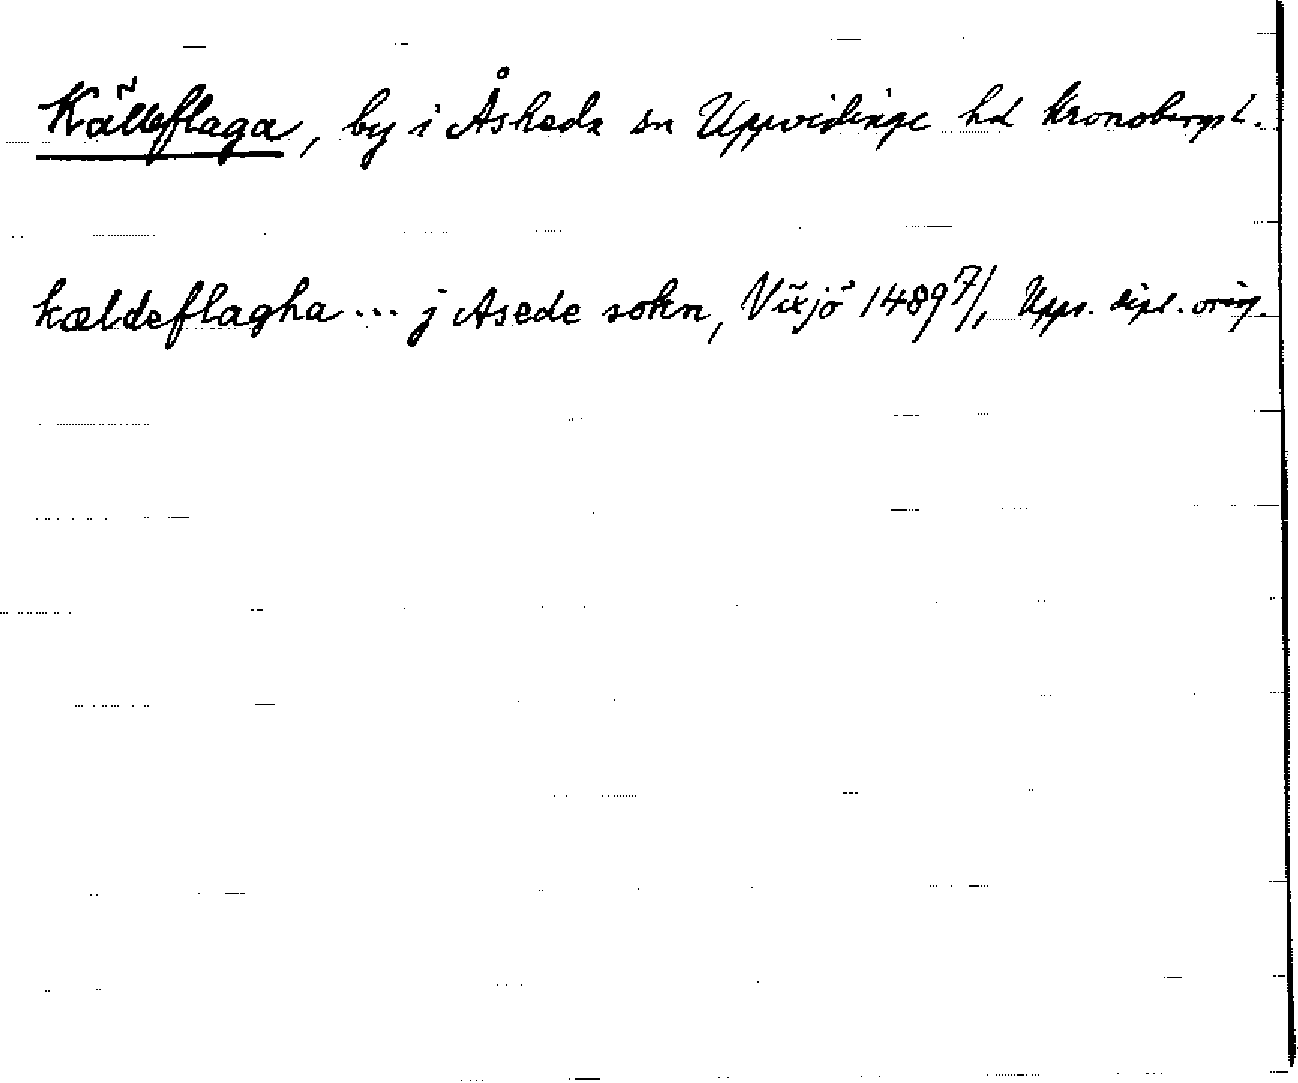 Källeflaga, by i Åsheda sn Uppvidinge hd Kronobergs l.
kældeflagha ... j Asede sokn, Växjö 1489 7/1, Upps. dipl. orig.